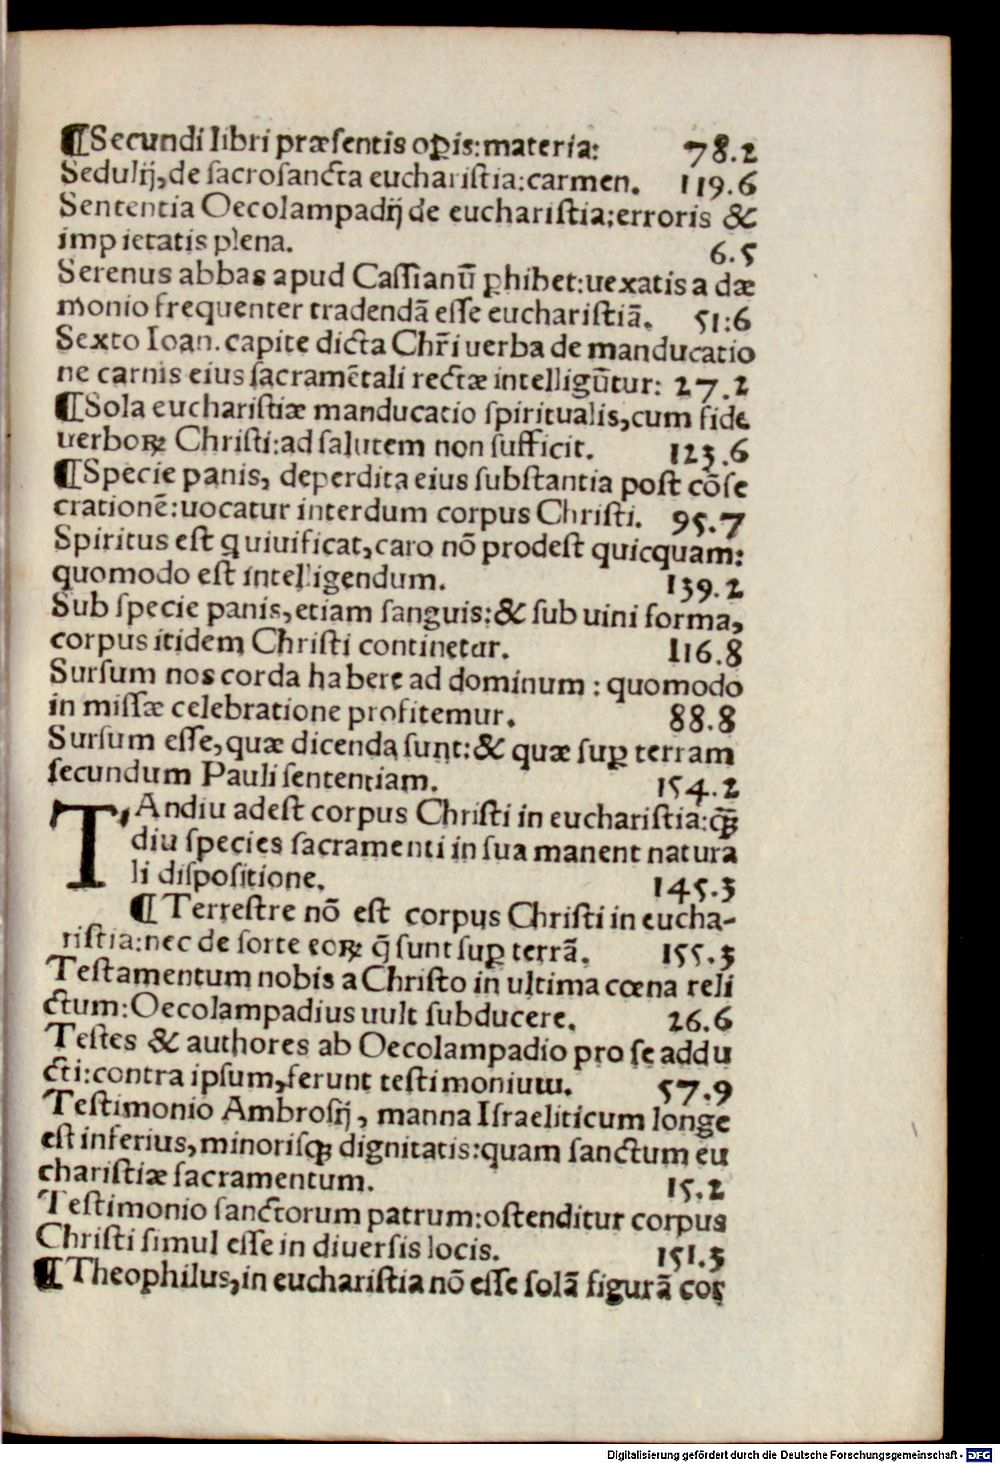 ¶Secundi libri præsentis oꝑis:materia: 78.2
Sedulij,de sacrosancta eucharistia:carmen. 119.6
Sententia Oecolampadij de eucharistia:erroris &
impietatis plena. 6.5
Serenus abbas apud Cassianū ꝓhibet:uexatis a dæ
monio frequenter tradendā esse eucharistiā. 51:6
Sexto Ioan.capite dicta Chr̄i uerba de manducatio
ne carnis eius sacramētali rectæ intelligūtur: 27.2
¶Sola eucharistiæ manducatio spiritualis,cum fide
uerboꝝ Christi:ad salutem non sufficit. 123.6
¶Specie panis, deperdita eius substantia post cōse
crationē:uocatur interdum corpus Christi. 95.7
Spiritus est q uiuificat,caro nō prodest quicquam:
quomodo est intelligendum. 139.2
Sub specie panis,etiam sanguis:& sub uini forma,
corpus itidem Christi continetur. 116.8
Sursum nos corda habere ad dominum : quomodo
in missæ celebratione profitemur. 88.8
Sursum esse,quæ dicenda sunt:& quæ suꝑ terram
secundum Pauli sententiam. 154.2
TAndiu adest corpus Christi in eucharistia:qꝫ̄
diu species sacramenti in sua manent natura
li dispositione. 145.3
¶Terrestre nō est corpus Christi in eucha-
ristia:nec de sorte eoꝝ q̄ sunt suꝑ terrā. 155.3
Testamentum nobis a Christo in ultima cœna reli
ctum:Oecolampadius uult subducere. 26.6
Testes & authores ab Oecolampadio pro se addu
cti:contra ipsum,ferunt testimonium. 57.9
Testimonio Ambrosij, manna Israeliticum longe
est inferius,minorisqꝫ dignitatis:quam sanctum eu
charistiæ sacramentum. 15.2
Testimonio sanctorum patrum:ostenditur corpus
Christi simul esse in diuersis locis. 151.3
¶Theophilus,in eucharistia nō esse solā figurā coꝛ
Digitalisierung gefördert durch die Deutsche Forschungsgemeinschaft - DFG